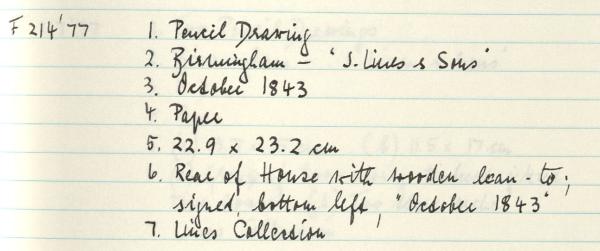 F 214'77 1. Pencil Drawing
2. Birmingham – 'J. Lines & Sons'
3. October 1843
4. Paper
5. 22.9 x 23.2 cm
6. Rear of House with wooden lean-to;
signed, bottom left, "October 1843"
7. Lines Collection